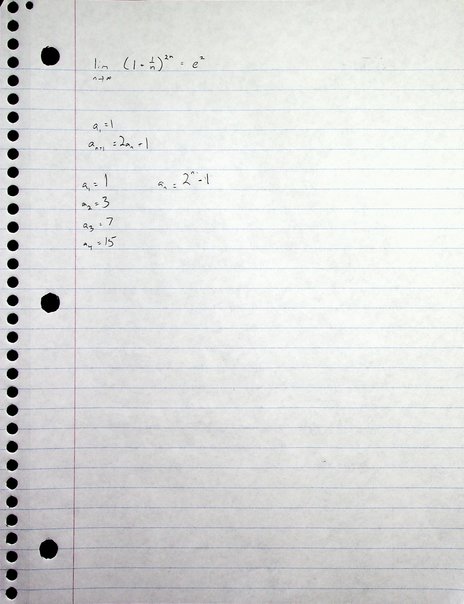 lim (1 + 1/n)^2n = e^2
n→∞
a₁ = 1
aₙ₊₁ = 2aₙ + 1
a₁ = 1 aₙ = 2ⁿ - 1
a₂ = 3
a₃ = 7
a₄ = 15